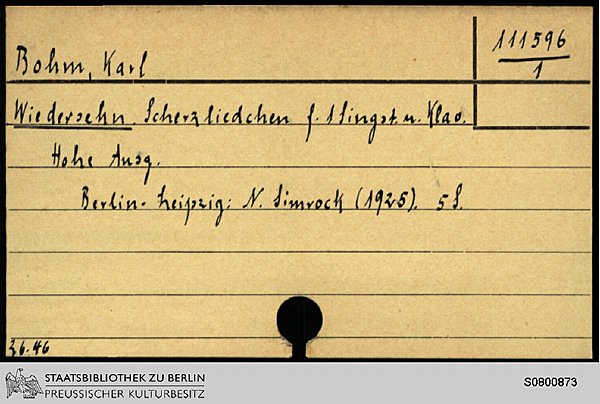 Bohm, Karl
111596
1
Wiedersehn. Scherzliedchen f. 1 Singst. u. Klav.
Hohe Ausg.
Berlin-Leipzig: N. Simrock (1925). 5 S.
26.46
STAATSBIBLIOTHEK ZU BERLIN
PREUSSISCHER KULTURBESITZ
S0800873